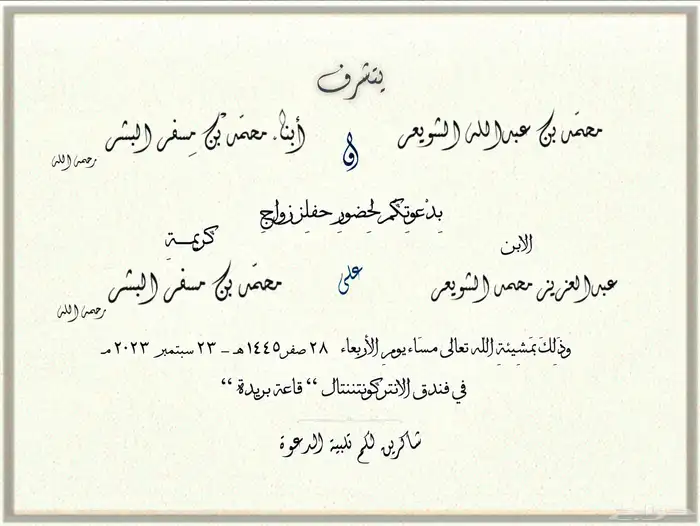 يتشرف
محمد بن عبدالله الشويعر و أبناء محمد بن مسفر البشر رحمه الله
بدعوتكم لحضور حفل زواج
الابن كريمة
عبدالعزيز محمد الشويعر على محمد بن مسفر البشر رحمه الله
وذلك بمشيئة الله تعالى مساء يوم الأربعاء ٢٨ صفر ١٤٤٥هـ - ٢٣ سبتمبر ٢٠٢٣ مـ
في فندق الانتركونتننتال “ قاعة بريدة “
شاكرين لكم تلبية الدعوة
حراج